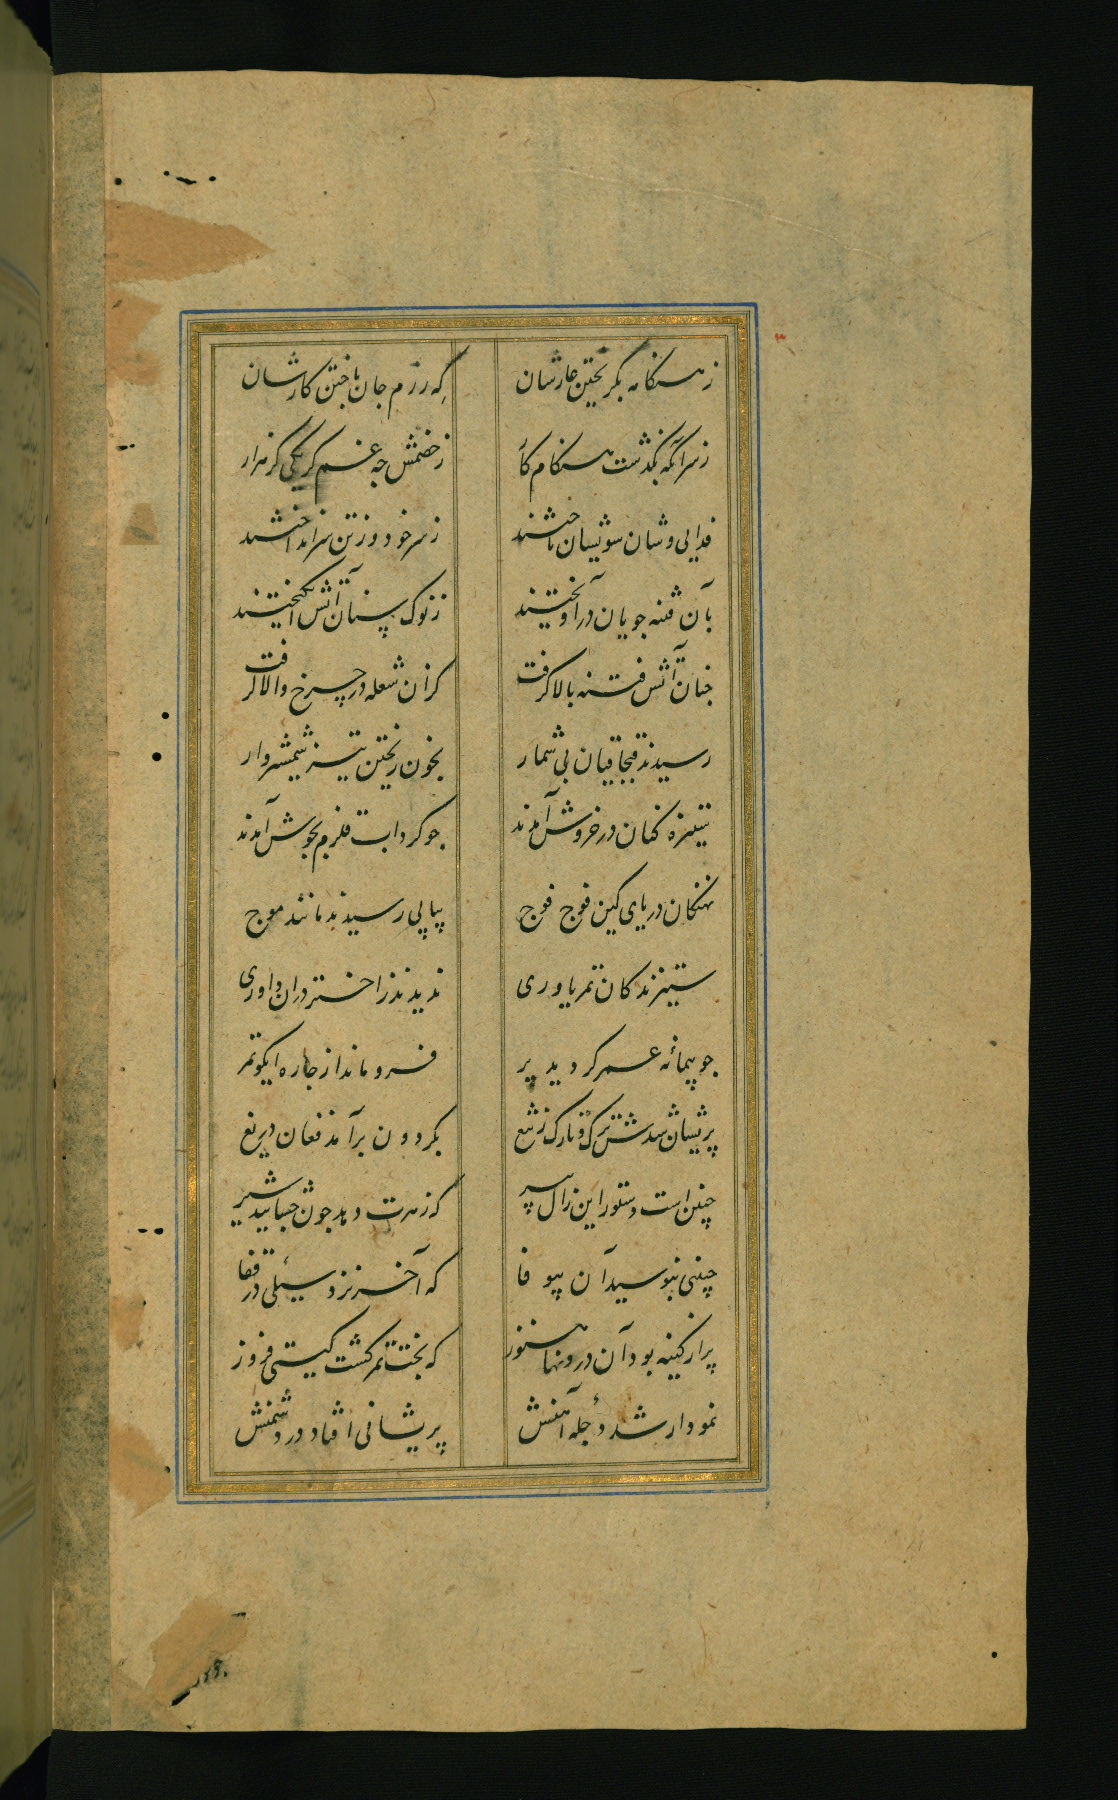 ز هنگامه بگریختن عارشان که رزم جان باختن کارشان
ز سر آنکه بگذشت هنگام کار ز خصمش چه غم گر یکی گر هزار
فدایی وشان سویشان تاختند ز سر خود و ز تن سر انداختند
بآن فتنه جویان درآویختند ز نوک سنان آتش انگیختند
چنان آتش فتنه بالا گرفت کزان شعله در چرخ والا گرفت
رسیدند قبچاقیان بی شمار بخون ریختن تیز شمشیروار
ستیزه کنان در خروش آمدند چو گرداب قلزم بجوش آمدند
نهنکان دریای کین فوج فوج پیاپی رسیدند مانند موج
ستیزندکان تمر یاوری ندیدند ز اختر دران داوری
چو پیمانه عمر گردید پر فرو ماند از چاره ایکوتمر
پریشان شدش ترک و تارک ز تیغ بگردون برآمد فغان دریغ
چنین است دستور این زال پیر که زهرت دهد چون چشانید شیر
جبینی نبوسید آن بیوفا که آخر نزد سیلئی در قفا
پر از کینه بود آن درونها هنوز که بخت تمر گشت گیتی فروز
نمودار شد دجله آهنش پریشانی افتاد در دشمنش